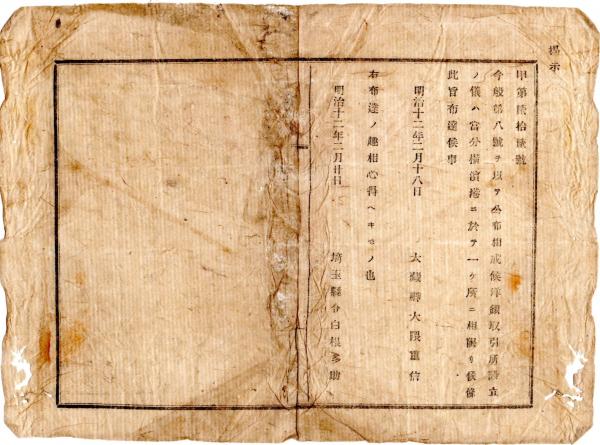 揭示
甲第陸拾陸號
今般第八號ヲ以テ公布相成候洋銀取引所設立
ノ儀ハ當分橫濱港ニ於テ一ケ所ニ相限リ候條
此旨布達候事
明治十二年二月十八日
大藏卿大隈重信
右布達ノ趣相心得ヘキモノ也
明治十二年二月廿日
埼玉縣令白根多助